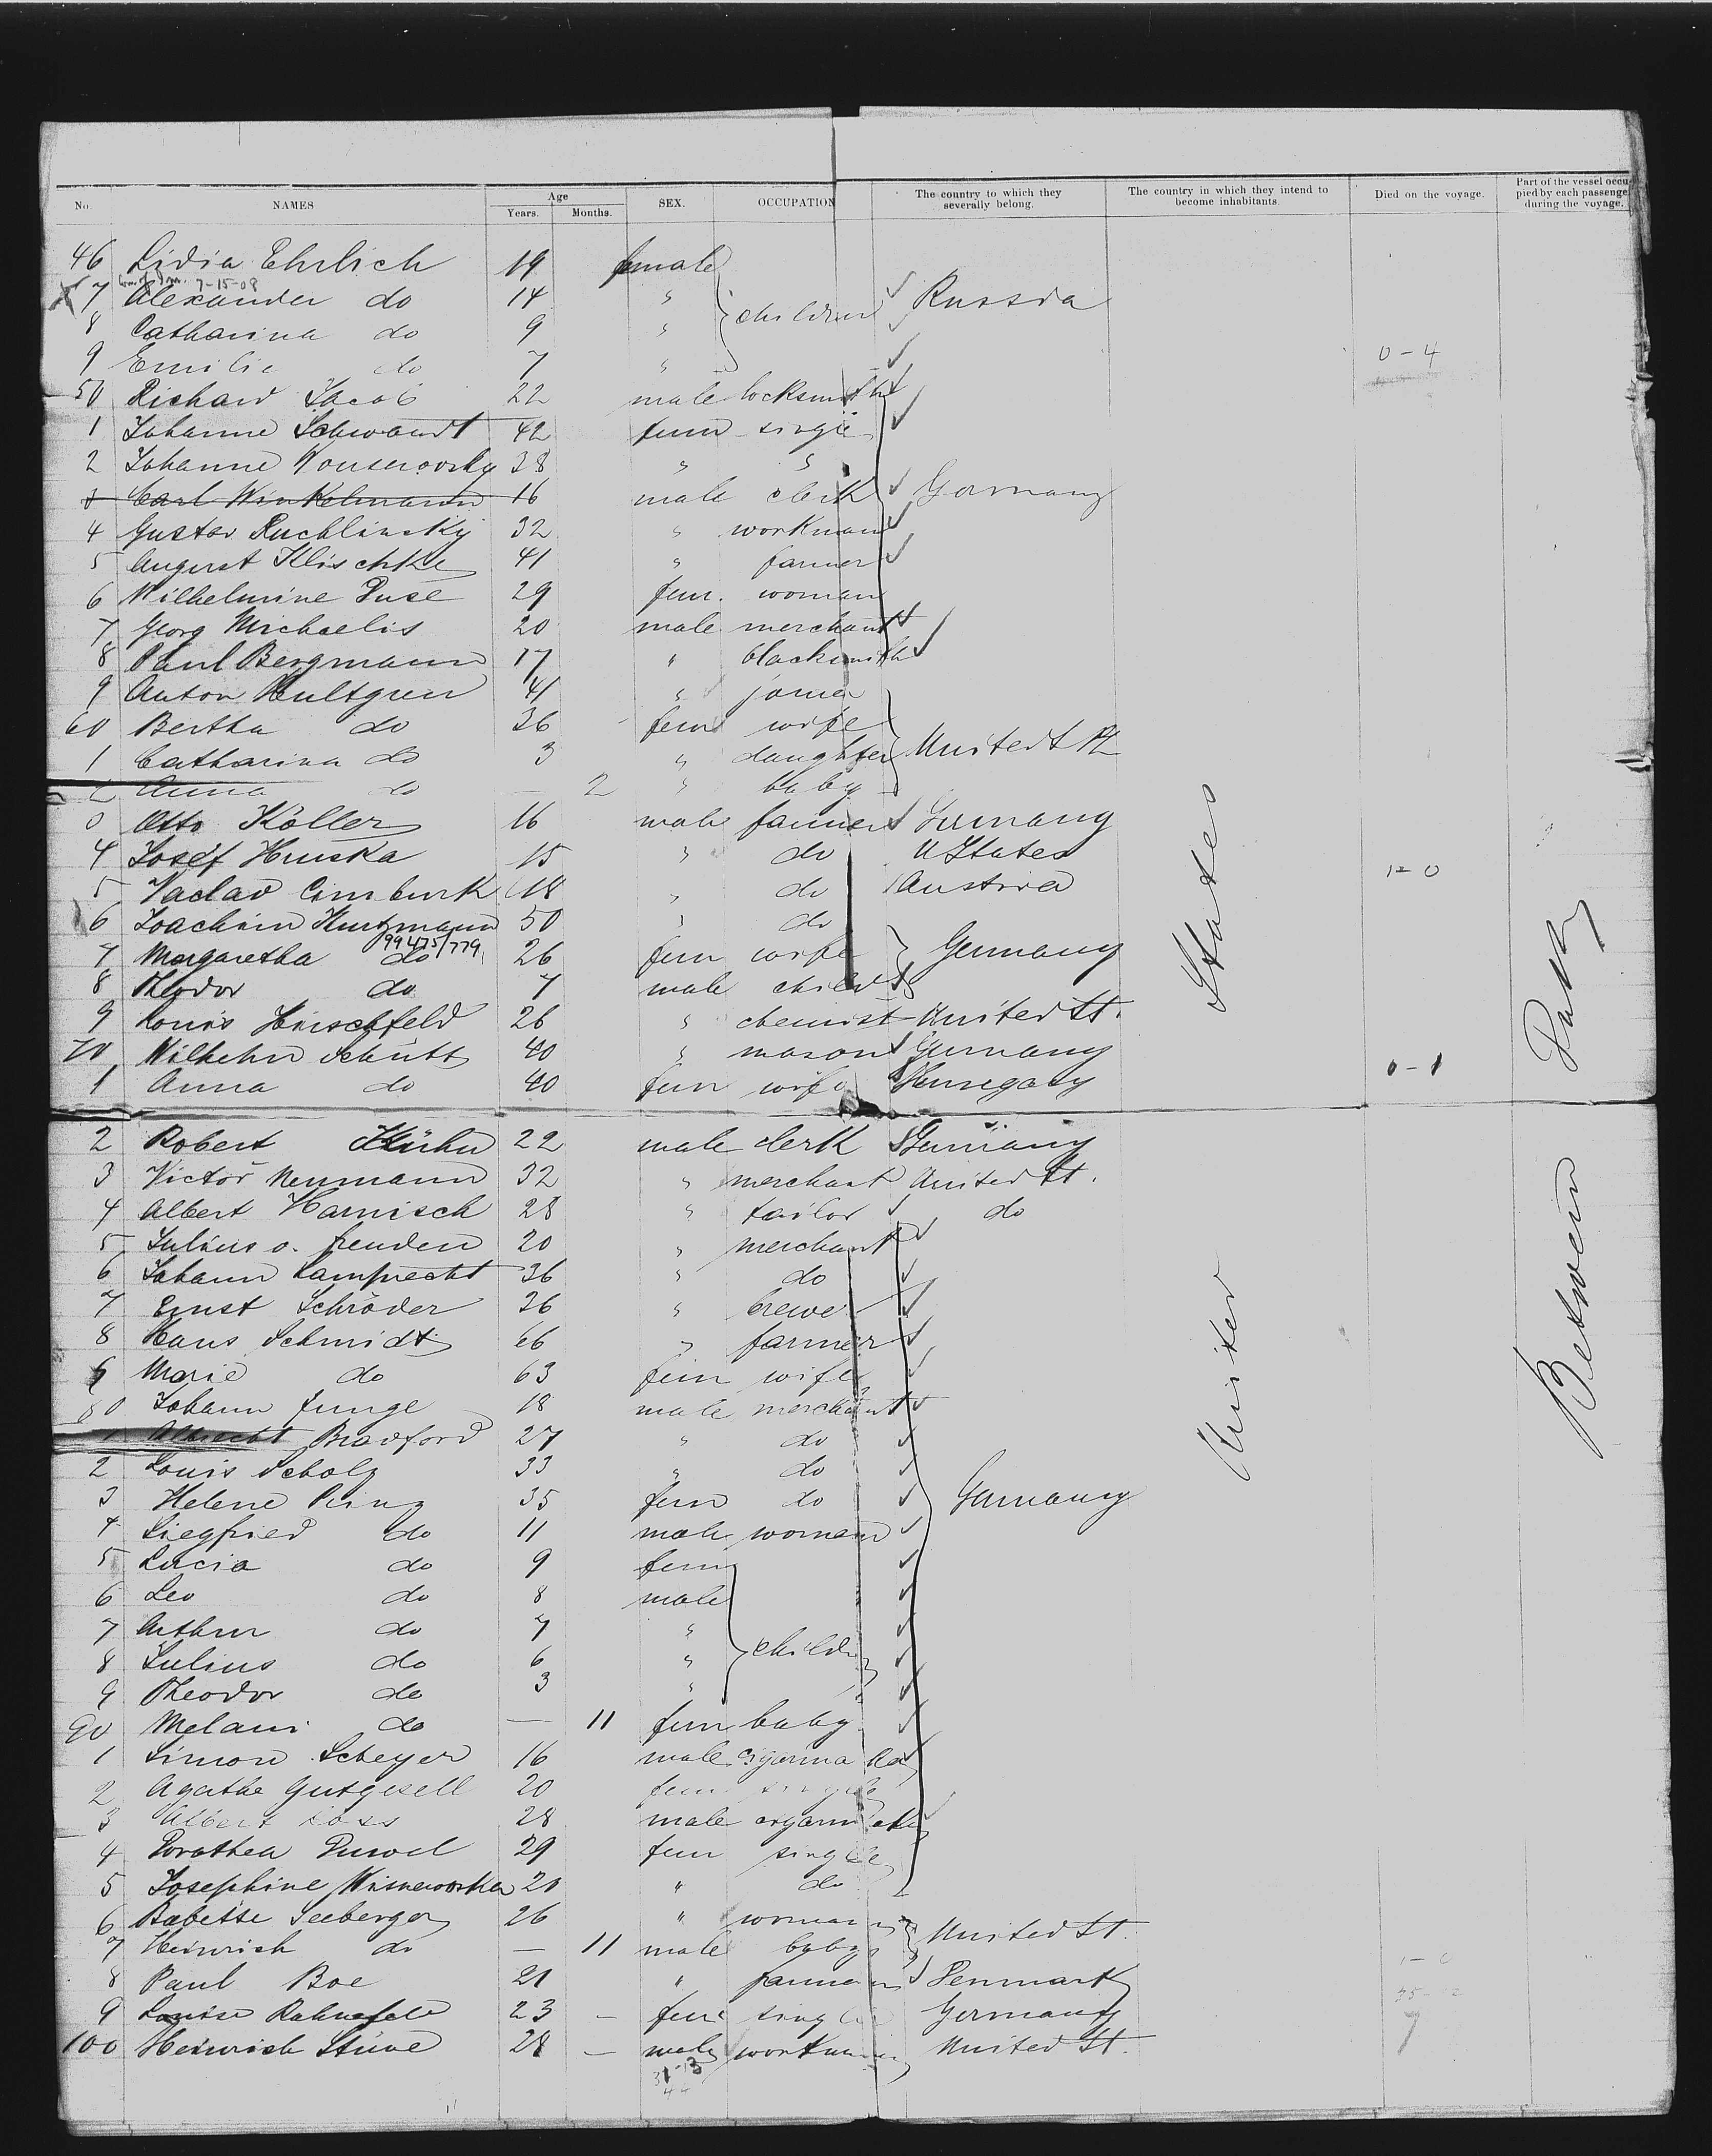 No. NAMES Age Years. Months. SEX. OCCUPATION The country to which they severally belong. The country in which they intend to become inhabitants. Died on the voyage. Part of the vessel occupied by each passenger during the voyage.
46 Lidia Ehrlich 19 female
7-15-08
7 Alexander do 14 " children Russia
8 Catharina do 9 "
9 Emilie do 7 " 0-4
50 Richard Jacob 22 male locksmith
1 Johanne Schwandt 42 fem single
2 Johanne 38 " "
3 Carl Winkelmann 16 male clerk Germany
4 Gustav Ruchlinsky 32 " workman
5 August Klischke 41 " farmer
6 Wilhelmine Duse 29 fem. woman
7 Georg Michaelis 20 male merchant
8 Paul Bergmann 17 " blacksmith
9 Anton Hultgren 41 " joiner
60 Bertha do 36 fem wife
1 Catharina do 3 " daughter United St
2 Anna do — 2 " baby
3 Otto Köller 16 male farmer Germany
4 Josef Hruska 15 " do U States
5 Vaclav Cimburk 18 " do Austria 1-0
6 Joachim Kurzmann 50 " do
99475/779
7 Margaretha do 26 fem wife Germany
8 Theodor do 7 male child
9 Louis Hirschfeld 26 " chemist United St.
70 Wilhelm Schütt 40 " mason Germany
1 Anna do 40 fem wife 0-1
2 Robert Kühn 22 male clerk Germany
3 Victor Neumann 32 " merchant United St.
4 Albert Harnisch 28 " tailor do
5 Julius v. freuden 20 " merchant
6 Johann Lamprecht 36 " do
7 Ernst Schröder 26 " brewer
8 Hans Schmidt 66 " farmer
9 Marie do 63 fem wife
80 Johann Junge 18 male merchant
1 Albrecht Bradford 27 " do
2 Louis Scholz 33 " do
3 Helene 35 fem do Germany
4 Siegfried do 11 male woman
5 Lucia do 9 fem
6 Leo do 8 male
7 Arthur do 7 "
8 Julius do 6 " children
9 Theodor do 3 "
90 Melani do — 11 fem baby
1 Simon Scheyer 16 male
2 Agathe Gutgesell 20 fem single
3 Albert 28 male
4 Dorothea 29 fem single
5 Josephine " do
6 Babette Seeberger 26 " woman
7 Heinrich do — 11 male baby United St.
8 Paul Boe 21 " farmer Denmark
9 Louise Rahnefeld 23 — fem single Germany
100 Heinrich Stüve 28 — male workman United St.
31-13
44
United States
Between Decks